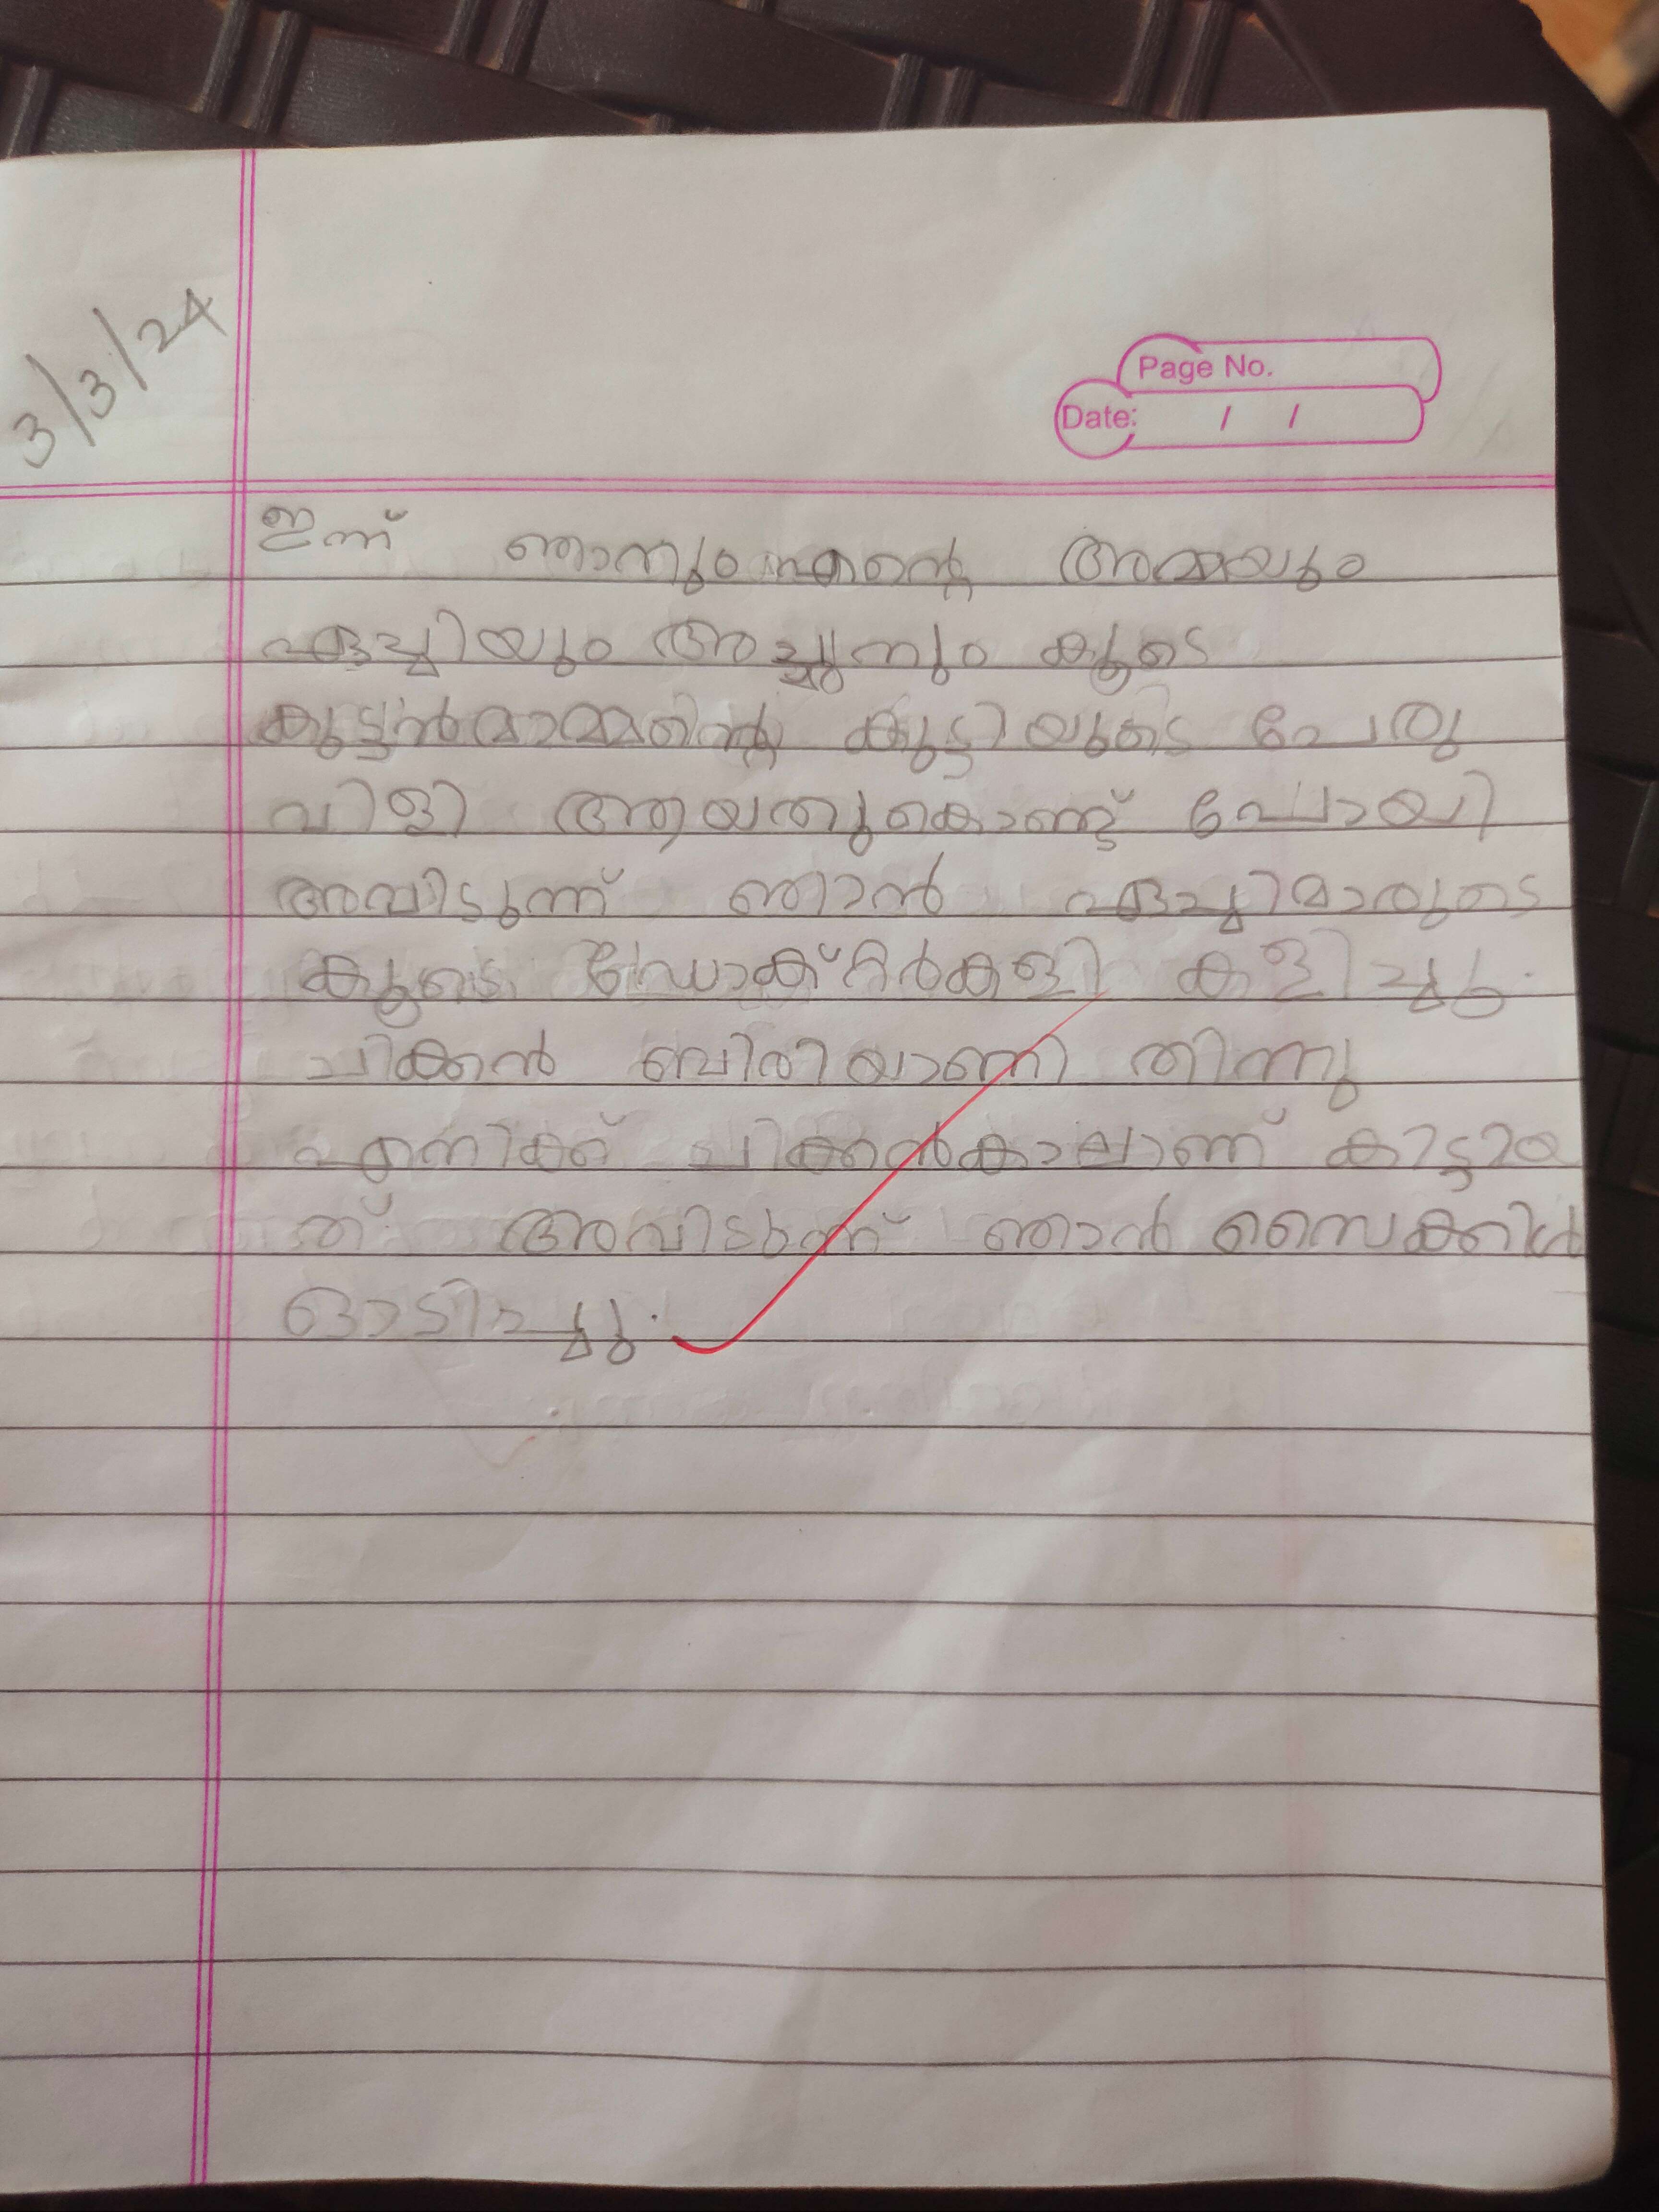 3/3/24
Page No.
Date: / /
ഇന്ന് ഞാനും എന്റെ അമ്മയും
ഏച്ചിയും അച്ഛനും കൂടെ
കുട്ടൻമാമ്മന്റെ കുട്ടിയുടെ പേരു
വിളി ആയതുകൊണ്ട് പോയി
അവിടുന്ന് ഞാൻ ഏച്ചിമാരുടെ
കൂടെ ഡോക്ടർകളി കളിച്ചു.
ചിക്കൻ ബിരിയാണി തിന്നു
എനിക്ക് ചിക്കൻകാലാണ് കിട്ടിയ
ത് അവിടുന്ന് ഞാൻ സൈക്കിൾ
ഓടിച്ചു.